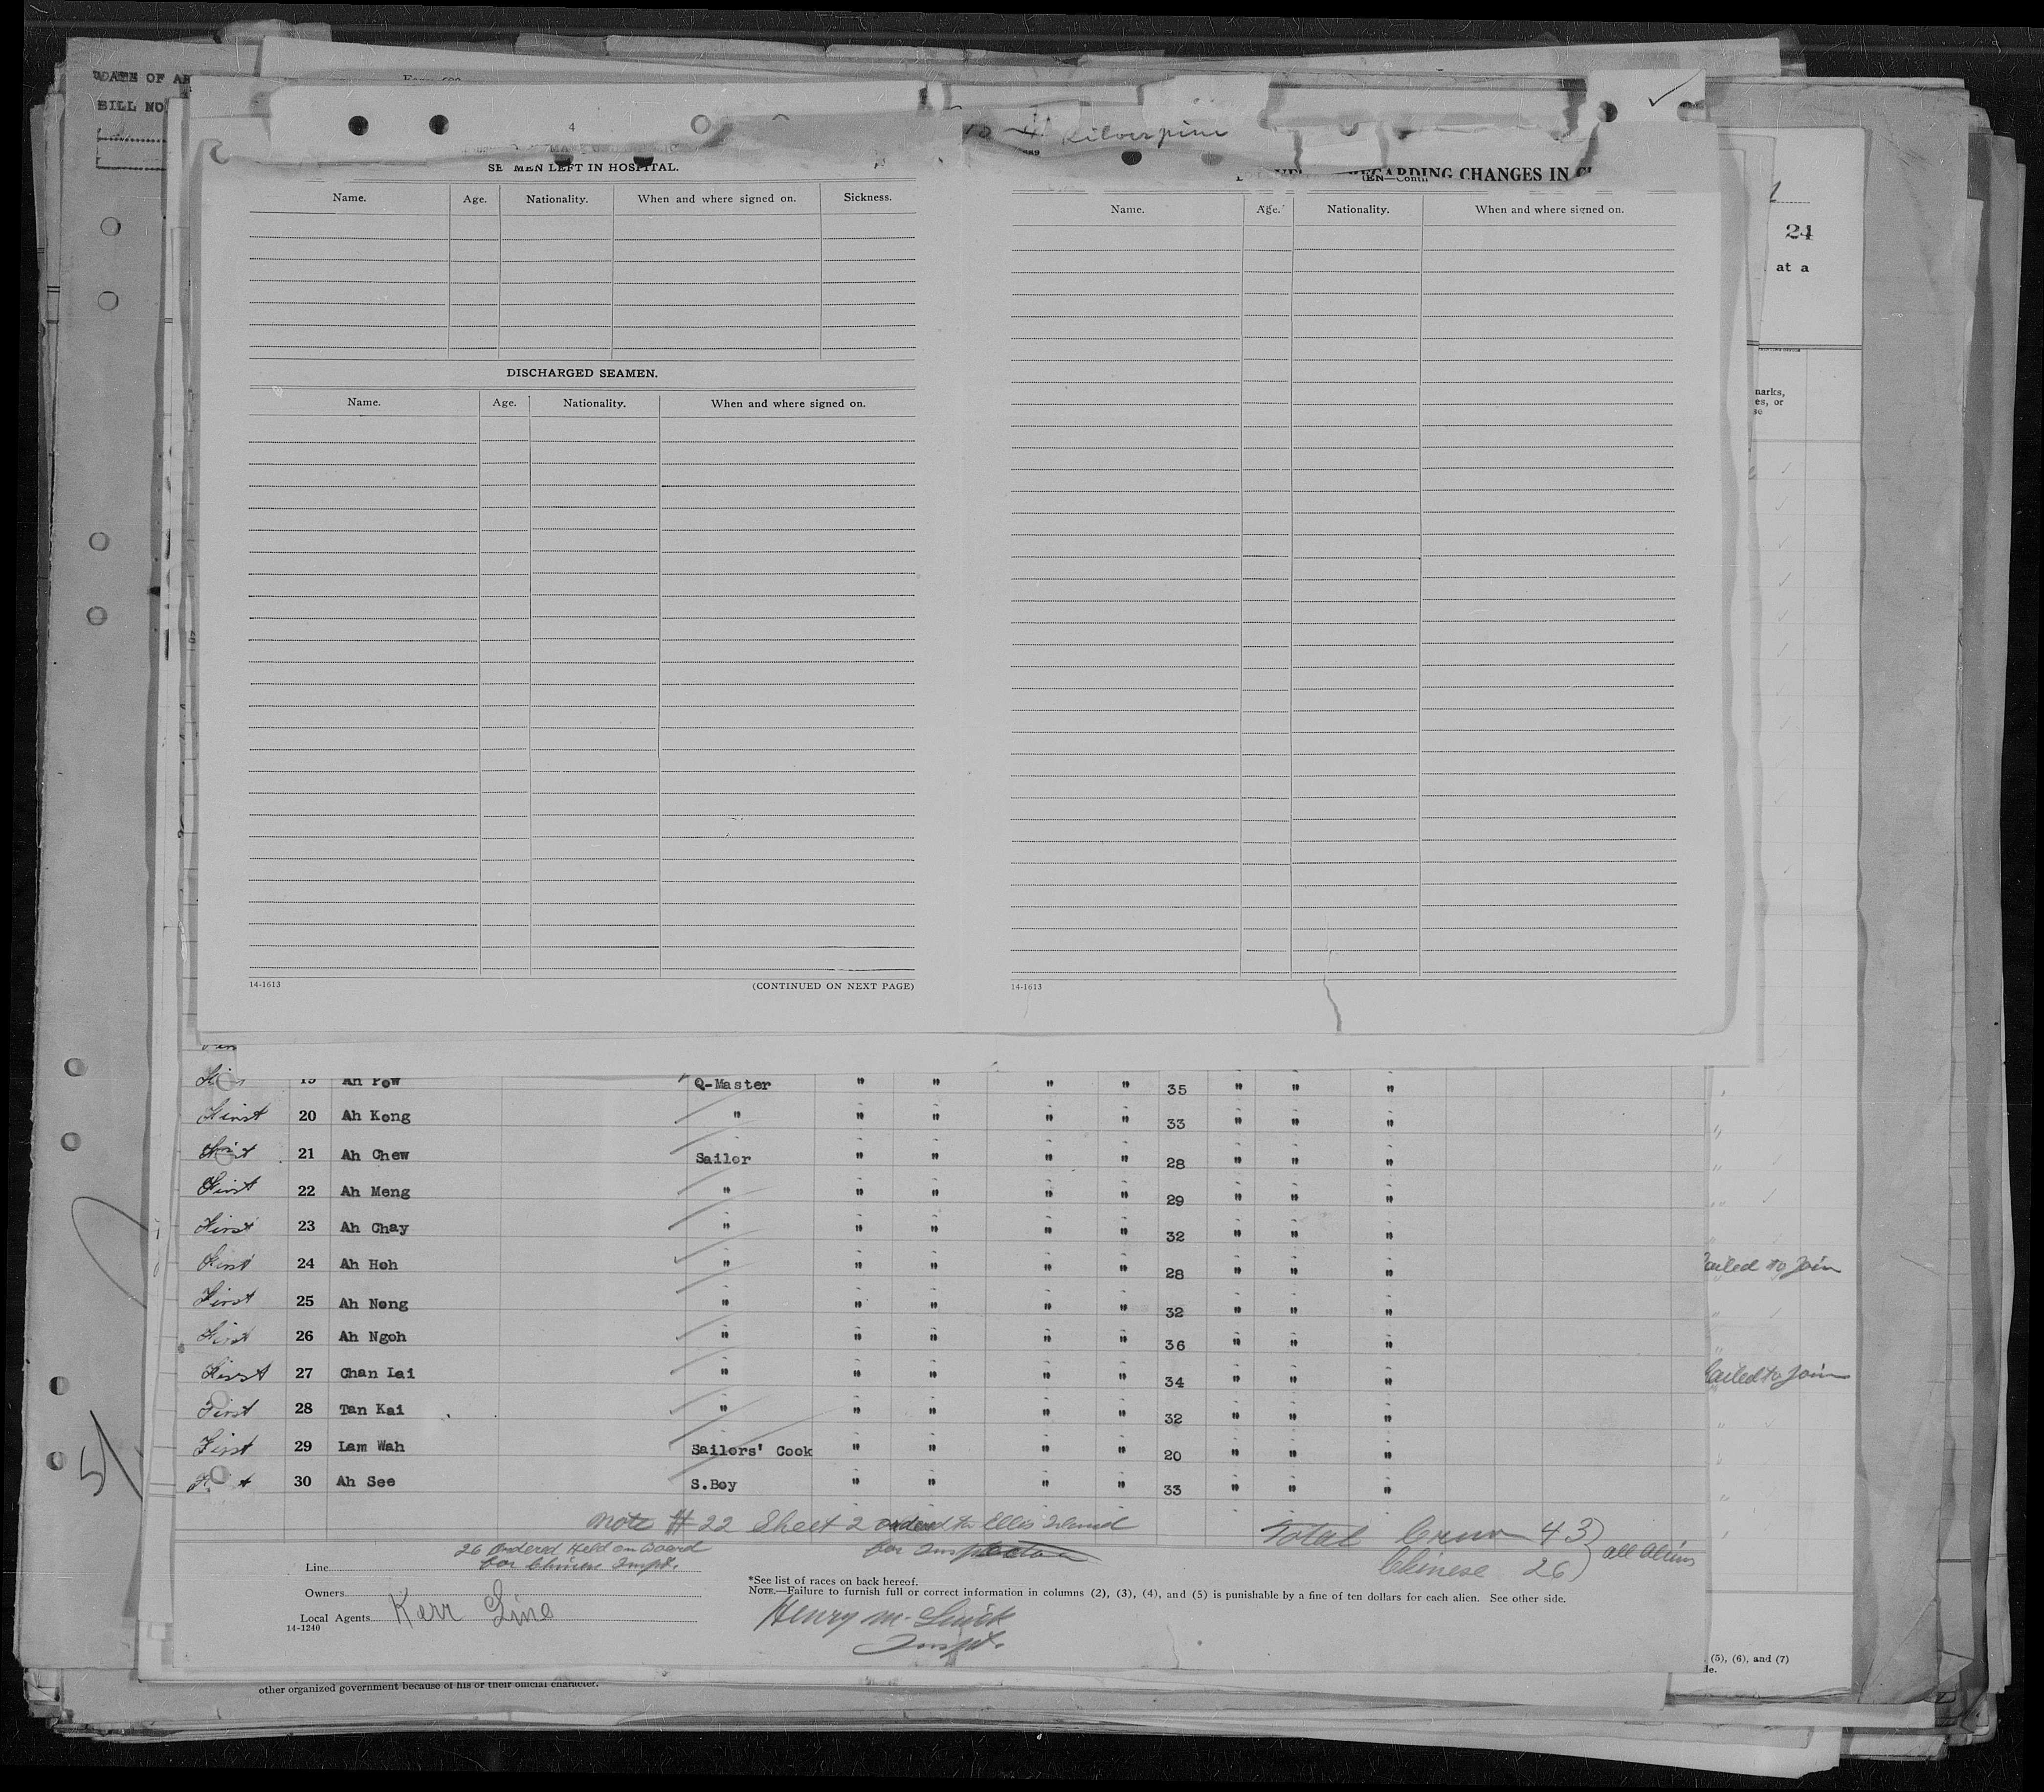 DATE OF AR
BILL NO
4
Silverpine
SEAMEN LEFT IN HOSPITAL.
Name. Age. Nationality. When and where signed on. Sickness.
DISCHARGED SEAMEN.
Name. Age. Nationality. When and where signed on.
14-1613 (CONTINUED ON NEXT PAGE)
REGARDING CHANGES IN C
MEN—Conti
Name. Age. Nationality. When and where signed on.
14-1613
24
at a
marks,
es, or
se
19 Ah Pow Q-Master " " " " 35 " " "
First 20 Ah Kong " " " " " 33 " " "
First 21 Ah Chew Sailor " " " " 28 " " "
First 22 Ah Meng " " " " " 29 " " "
First 23 Ah Chay " " " " " 32 " " "
First 24 Ah Hoh " " " " " 28 " " "
ailed to Join
First 25 Ah Nong " " " " " 32 " " "
First 26 Ah Ngoh " " " " " 36 " " "
First 27 Chan Lai " " " " " 34 " " "
ailed to Join
First 28 Tan Kai " " " " " 32 " " "
First 29 Lam Wah Sailors' Cook " " " " 20 " " "
First 30 Ah See S.Boy " " " " 33 " " "
Note # 22 Sheet 2 ordered to Ellis Island
for Inspection
Total Crew 43
Chinese 26
all Aliens
26 Ordered Held on Board
for Chinese Inspt.
Line
Owners
Local Agents Kerr Line
14-1240
*See list of races on back hereof.
NOTE.—Failure to furnish full or correct information in columns (2), (3), (4), and (5) is punishable by a fine of ten dollars for each alien. See other side.
Henry M.
Inspt.
(5), (6), and (7)
de.
other organized government because of his or their official character.
51